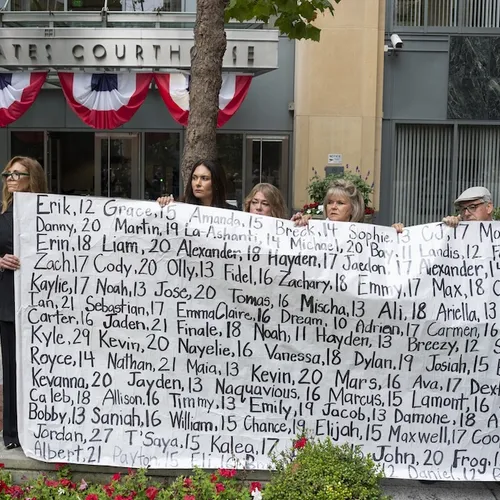 ATES COURTHOUSE
Erik, 12 Grace, 15 Amanda, 15 Breck, 14 Sophie, 13 CJ, 17
Danny, 20 Martin, 19 La-Ashanti, 14 Michael, 20 Bay, 11 Landis, 12
Erin, 18 Liam, 20 Alexander, 18 Hayden, 17 Jaedon, 17 Alexander, 1
Zach, 17 Cody, 20 Olly, 13 Fidel, 16 Zachary, 18 Emmy, 17 Max, 18
Kaylie, 17 Noah, 13 Jose, 20 Tomas, 16 Mischa, 13 Ali, 18 Ariella, 13
Ian, 21 Sebastian, 17 EmmaClaire, 16 Dream, 10 Adrien, 17 Carmen, 16
Carter, 16 Jaden, 21 Finale, 18 Noah, 11 Hayden, 13 Breezy, 12
Kyle, 29 Kevin, 20 Nayelie, 16 Vanessa, 18 Dylan, 19 Josiah, 15
Royce, 14 Nathan, 21 Maia, 13 Kevin, 20 Mars, 16 Ava, 17
Kevanna, 20 Jayden, 13 Naquavious, 16 Marcus, 15 Lamont, 16
Caleb, 18 Allison, 16 Timmy, 13 Emily, 19 Jacob, 13 Damone, 18
Bobby, 13 Saniah, 16 William, 15 Chance, 19 Elijah, 15 Maxwell, 17
Jordan, 27 T'Saya, 15 Kalea, 17 John, 20 Frog
Albert, 21 Payton, 15 Daniel, 12